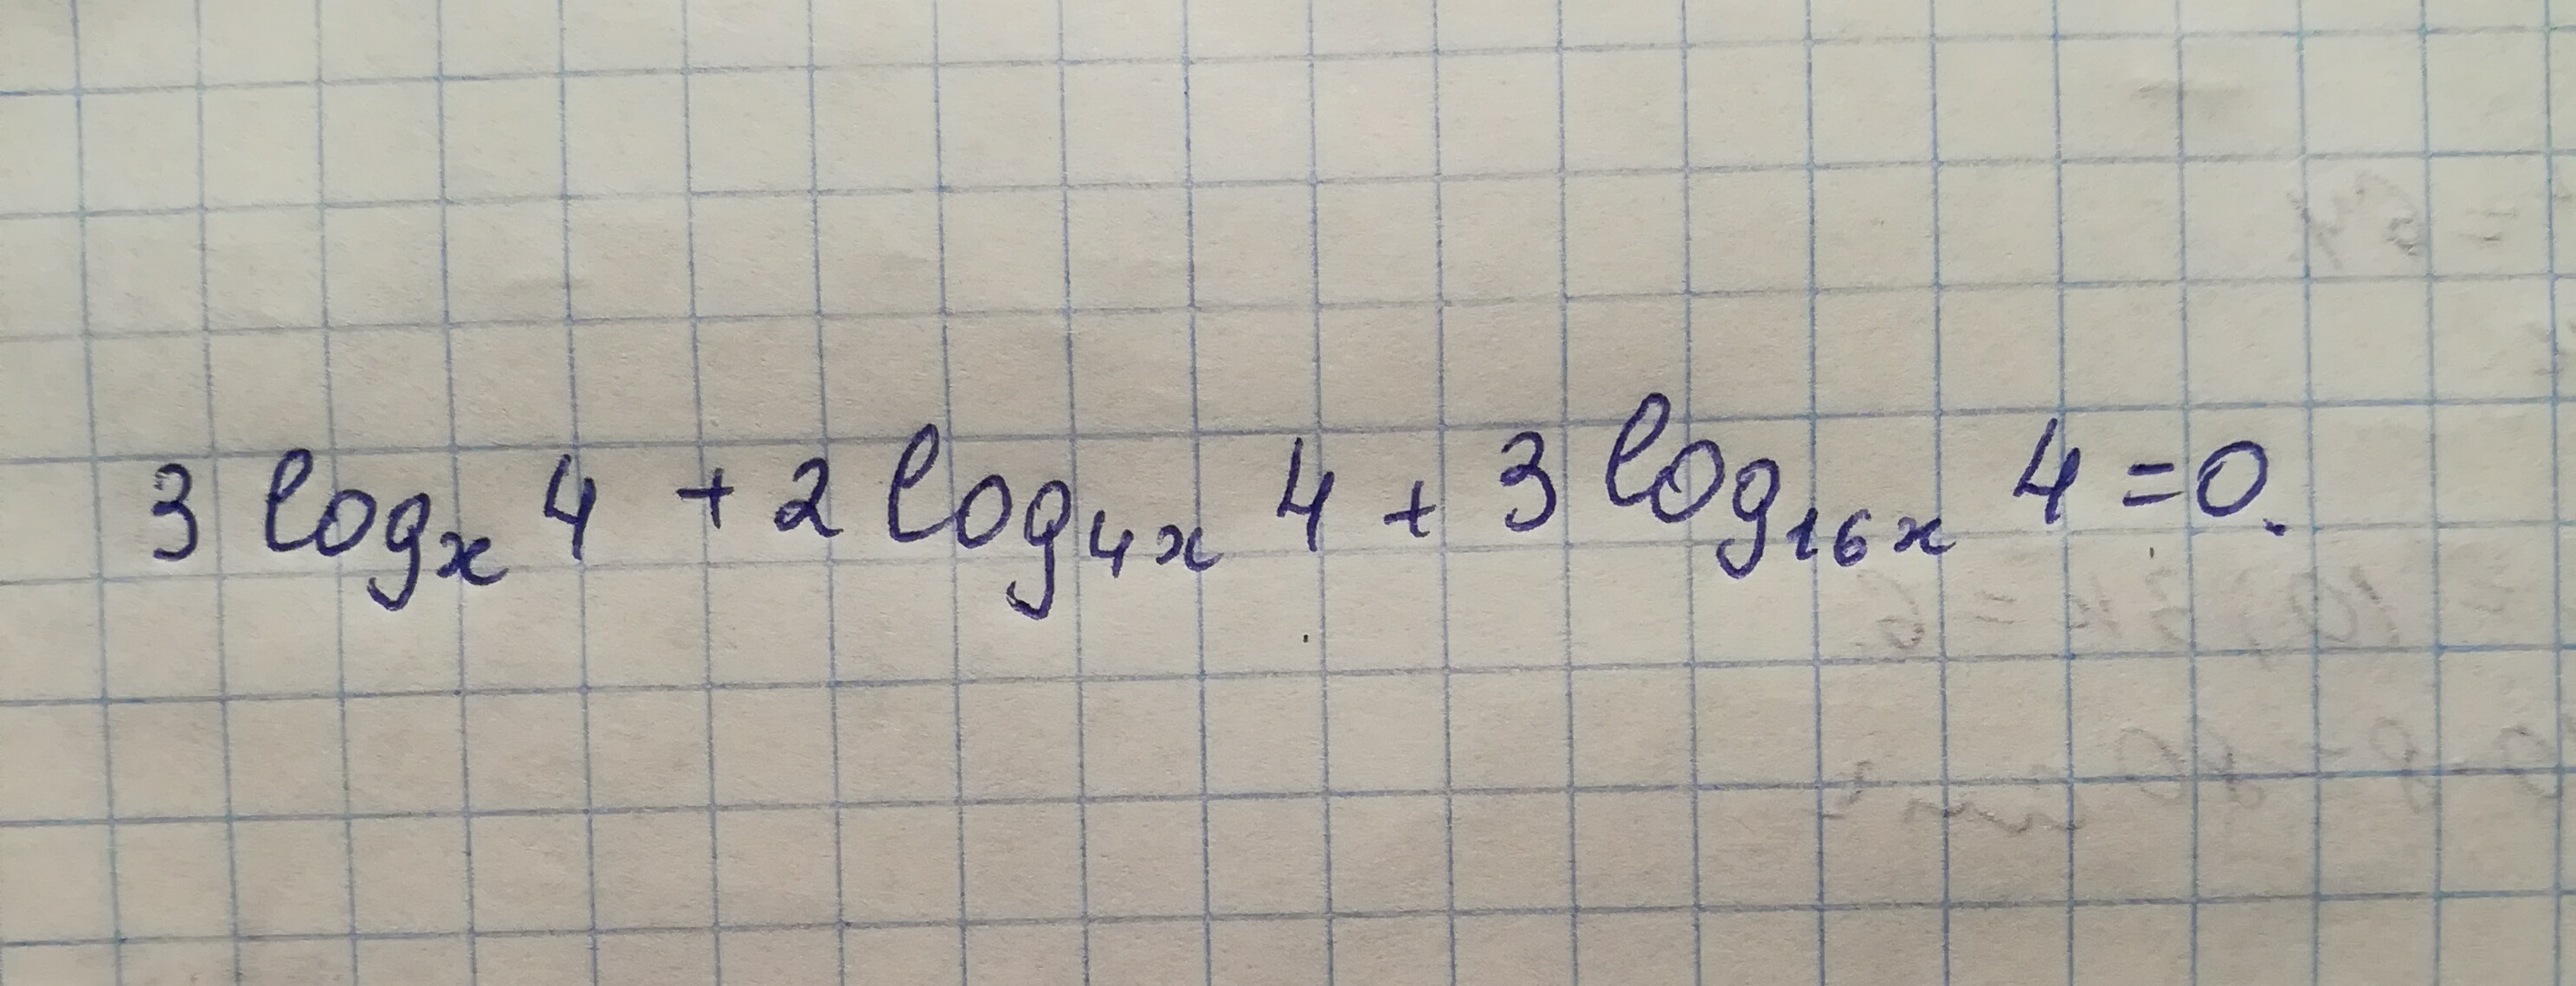 3 logₓ 4 + 2 log₄ₓ 4 + 3 log₁₆ₓ 4 = 0.